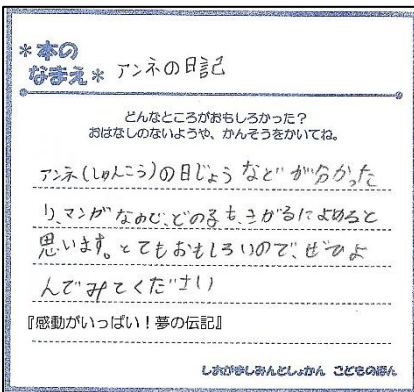 *本の
なまえ* アンネの日記
どんなところがおもしろかった?
おはなしのないようや、かんそうをかいてね。
アンネ(しゅんこう)の日じょうなどが分かった
り、マンガなので、どの子も、きがるによめると
思います。とてもおもしろいので、ぜひよ
んでみてください
『感動がいっぱい!夢の伝記』
しおがましみんとしょかん こどものほん